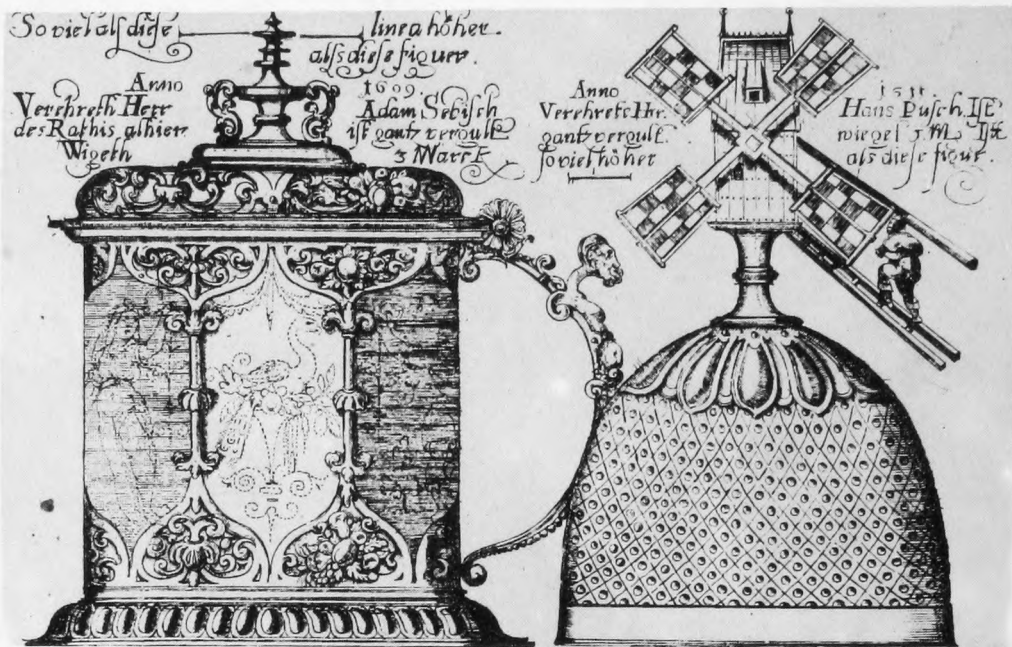 So viel als diese linea höher.
alss diese figuer.
Anno 1609.
Verehreth Herr Adam Sebisch
des Rathis alhier ist gantz vergult
Wigeth 3 Marck
Anno
Verehrete Hr. Hans Pusch. Ist
gantz vergult wieget 3 M Ist
so viel höher als diese figur.